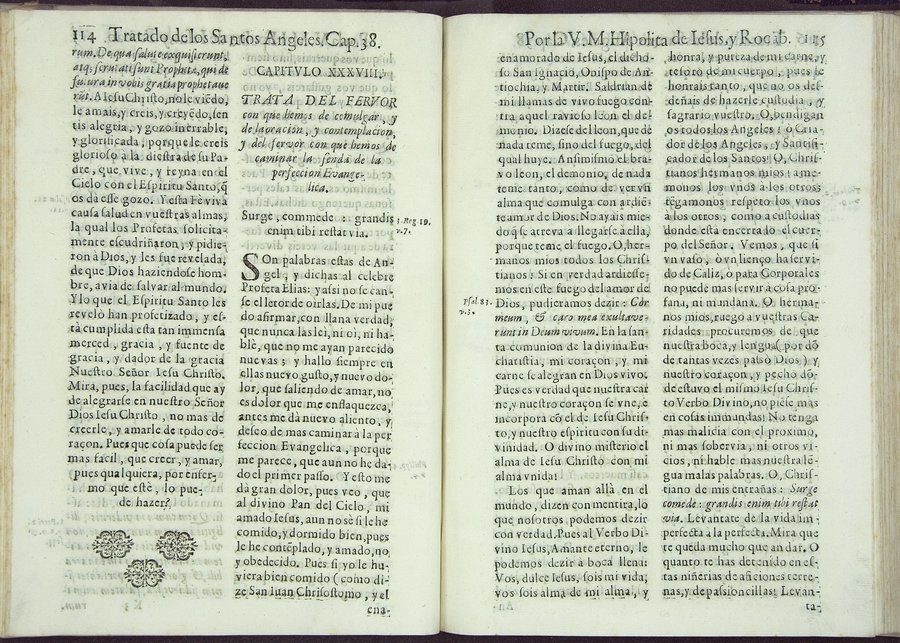 114 Tratado de los Santos Angeles, Cap. 38.
rum. De qua salute exquisierunt,
atq; scrutati sunt Prophetæ, qui de
futura in vobis gratia prophetaue
rūt. A Iesu Christo, no le viēdo,
le amais, y creis, y creyēdo, sen
tis alegria, y gozo inerrable,
y glorificada, porque le creis
glorioso à la diestra de su Pa-
dre, que vive, y reyna en el
Cielo con el Espiritu Santo, q̄
os da esse gozo. Y esta Fè viva
causa salud en vuestras almas,
la qual los Profetas solicita-
mente escudriñaron, y pidie-
ron à Dios, y les fue revelada,
de que Dios haziendose hom-
bre, avia de salvar al mundo.
Y lo que el Espiritu Santo les
revelò han profetizado, y es-
tà cumplida esta tan immensa
merced, gracia, y fuente de
gracia, y dador de la gracia
Nuestro Señor Iesu Christo.
Mira, pues, la facilidad que ay
de alegrarse en nuestro Señor
Dios Iesu Christo, no mas de
creerle, y amarle de todo co-
raçon. Pues que cosa puede ser
mas facil, que creer, y amar,
pues qualquiera, por enfer-
mo que estè, lo pue-
de hazer?
rum.
K 3
CAPITVLO XXXVIII.
TRATA DEL FERVOR
con que hemos de comulgar, y
de la oracion, y contemplacion,
y del fervor con que hemos de
caminar la senda de la
perfeccion Evange-
lica.
Surge, commede: grandis
enim tibi restat via.
3. Reg 19.
v. 7.
SOn palabras estas de An-
gel, y dichas al celebre
Profeta Elias: y assi no se can-
se el letor de oirlas. De mi pue
do afirmar, con llana verdad,
que nunca las lei, ni oi, ni ha-
blè, que no me ayan parecido
nuevas; y hallo siempre en
ellas nuevo gusto, y nuevo do-
lor, que saliendo de amar, no
es dolor que me enflaquezca,
antes me dà nuevo aliento, y
deseo de mas caminar à la per
feccion Evangelica, porque
me parece, que aun no he da-
do el primer passo. Y esto me
dà gran dolor, pues veo, que
al divino Pan del Cielo, mi
amado Iesus, aun no sè si le he
comido, y dormido bien, pues
le he contēplado, y amado, no,
y obedecido. Pues si yo le hu-
viera bien comido (como di-
ze San Iuan Chrisostomo, y el
ena-
Por la V. M. Hipolita de Iesus, y Rocab. 115
enamorado de Iesus, el dicho-
so San Ignacio, Obispo de An-
tiochia, y Martir. Saldrian de
mi llamas de vivo fuego con-
tra aquel ravioso leon el de-
monio. Dizese del leon, que de
nada teme, sino del fuego, del
qual huye. Ansimismo el bra-
vo leon, el demonio, de nada
teme tanto, como de ver vn
alma que comulga con ardiē-
te amor de Dios: No ayais mie-
do q̄ se atreva à llegarse à ella,
porque teme el fuego. O, her-
manos mios todos los Chris-
tianos! Si en verdad ardiesse-
mos en este fuego del amor de
Dios, pudieramos dezir: Cor
meum, & caro mea exultave-
runt in Deum vivum. En la san-
ta comunion de la divina Eu-
charistia, mi coraçon, y mi
carne se alegran en Dios vivo.
Pues es verdad que nuestra car
ne, y nuestro coraçon se vne, è
incorpora cō el de Iesu Chris-
to, y nuestro espiritu con su di-
vinidad. O divino misterio el
alma de Iesu Christo con mi
alma vnida!
Psal 83.
v. 3.
Los que aman allà en el
mundo, dizen con mentira, lo
que nosotros podemos dezir
con verdad. Pues al Verbo Di-
vino Iesus, Amante eterno, le
podemos dezir à boca llena:
Vos, dulce Iesus, sois mi vida,
vos sois alma de mi alma, y
honra, y pureza de mi carne, y
tesoro de mi cuerpo, pues le
honrais tanto, que no os des-
deñais de hazerle custodia, y
sagrario vuestro. O, bendigan
os todos los Angeles! ò Cria-
dor de los Angeles, y Santifi-
cador de los Santos! O, Chris-
tianos hermanos mios! ame-
monos los vnos à los otros:
tēgamonos respeto los vnos
à los otros, como à custodias
donde està encerrado el cuer-
po del Señor. Vemos, que si
vn vaso, ò vn lienço ha servi-
do de Caliz, ò para Corporales
no puede mas servir à cosa pro-
fana, ni mundana. O herma-
nos mios, ruego à vuestras Ca-
ridades procuremos de que
nuestra boca, y lengua (por dō
de tantas vezes passò Dios) y
nuestro coraçon, y pecho dō-
de estuvo el mismo Iesu Chris-
to Verbo Divino, no piese mas
en cosas immundas! No tenga
mas malicia con el proximo,
ni mas sobervia, ni otros vi-
cios, ni hable mas nuestra lē-
gua malas palabras. O, Chris-
tiano de mis entrañas: Surge
comede: grandis enim tibi restat
via. Levantate de la vida im-
perfecta à la perfecta. Mira que
te queda mucho que andar. O
quanto te has detenido en es-
tas niñerias de aficiones terre-
nas, y de passioncillas! Levan-
ta-